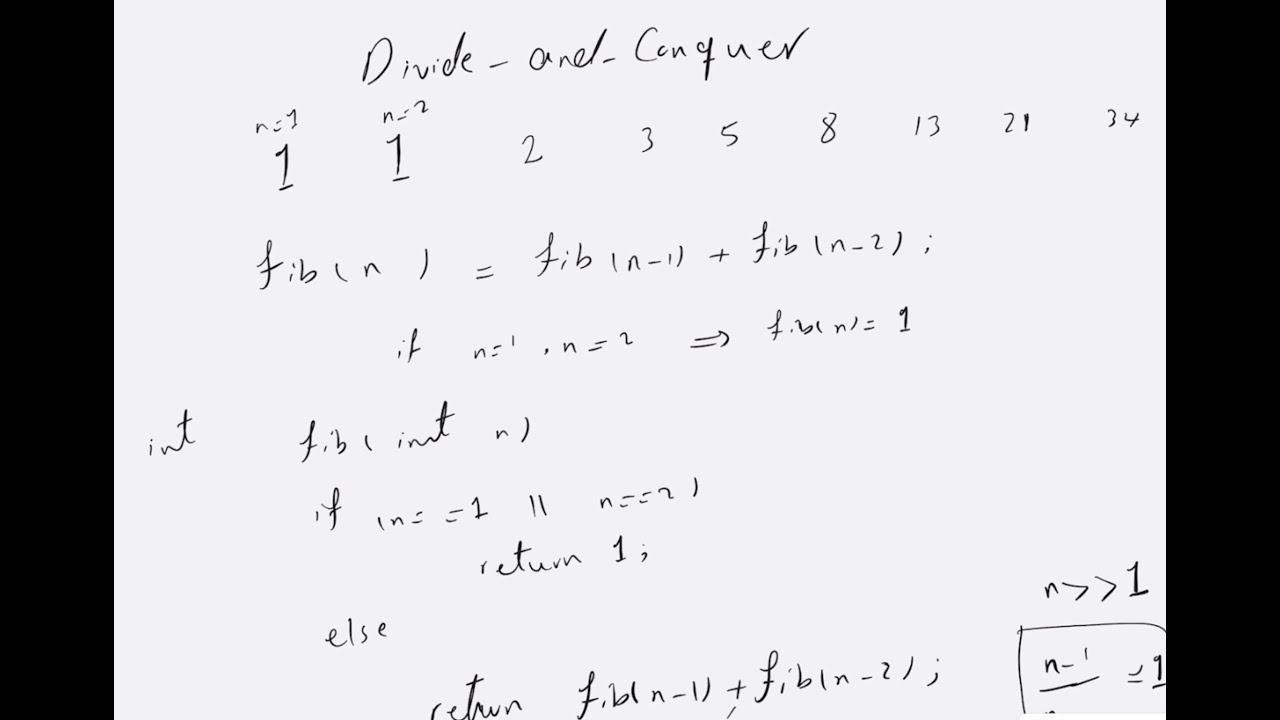 Divide-and-Conquer
n=1 n=2
1 1 2 3 5 8 13 21 34
fib(n) = fib(n-1) + fib(n-2);
if n=1, n=2 ⇒ fib(n)=1
int fib(int n)
if (n==1 || n==2)
return 1;
n>>1
else
n-1 ≃1
return fib(n-1)+fib(n-2);